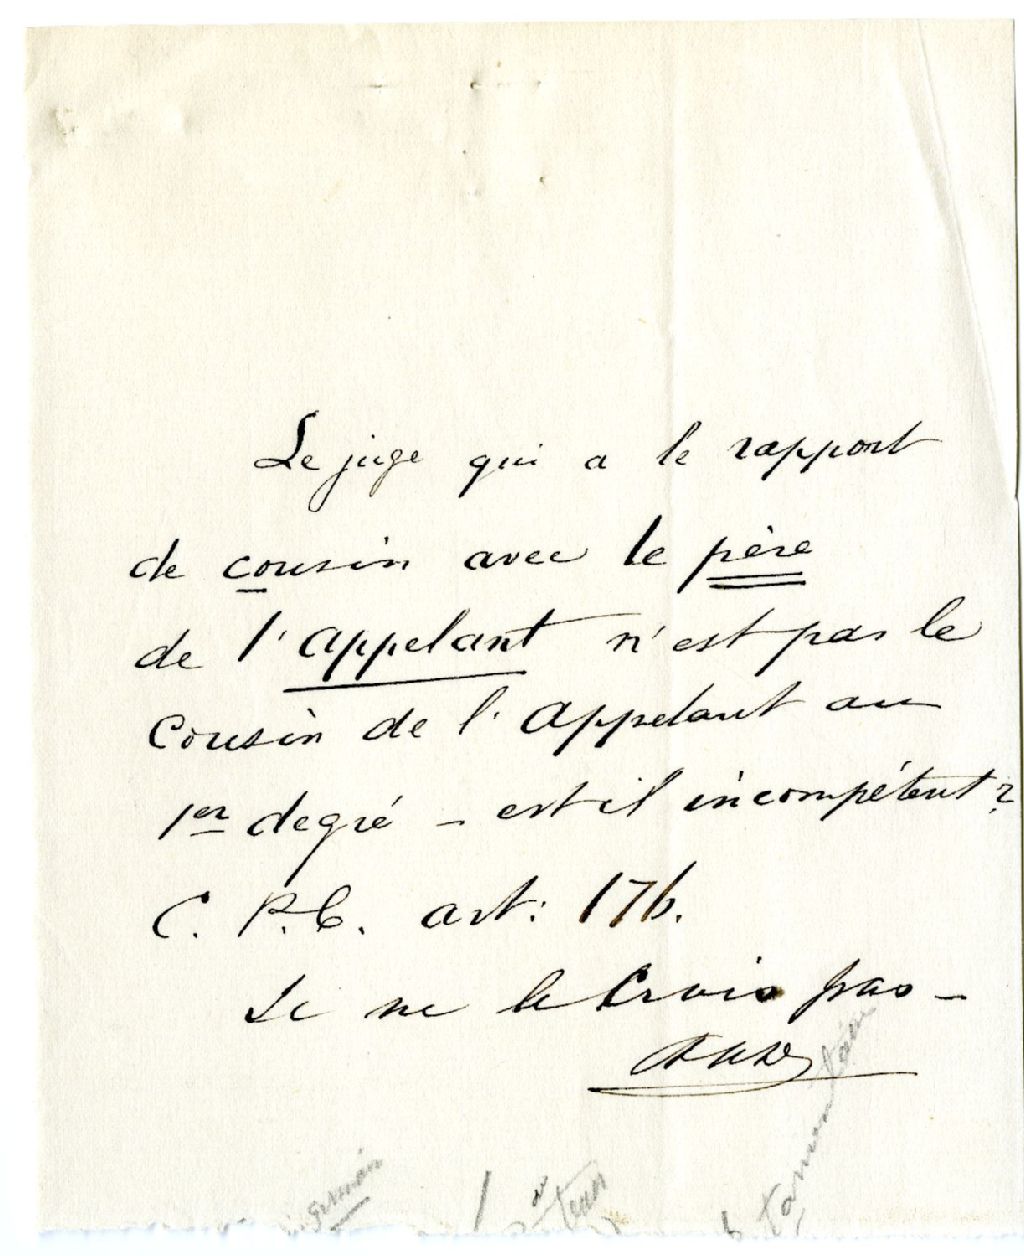 Le juge qui a le rapport
de cousin avec le père
de l'appelant n'est pas le
cousin de l'appelant au
1er degré – est il incompétent?
C. P. C. art: 176.
Je ne le crois pas –
germain